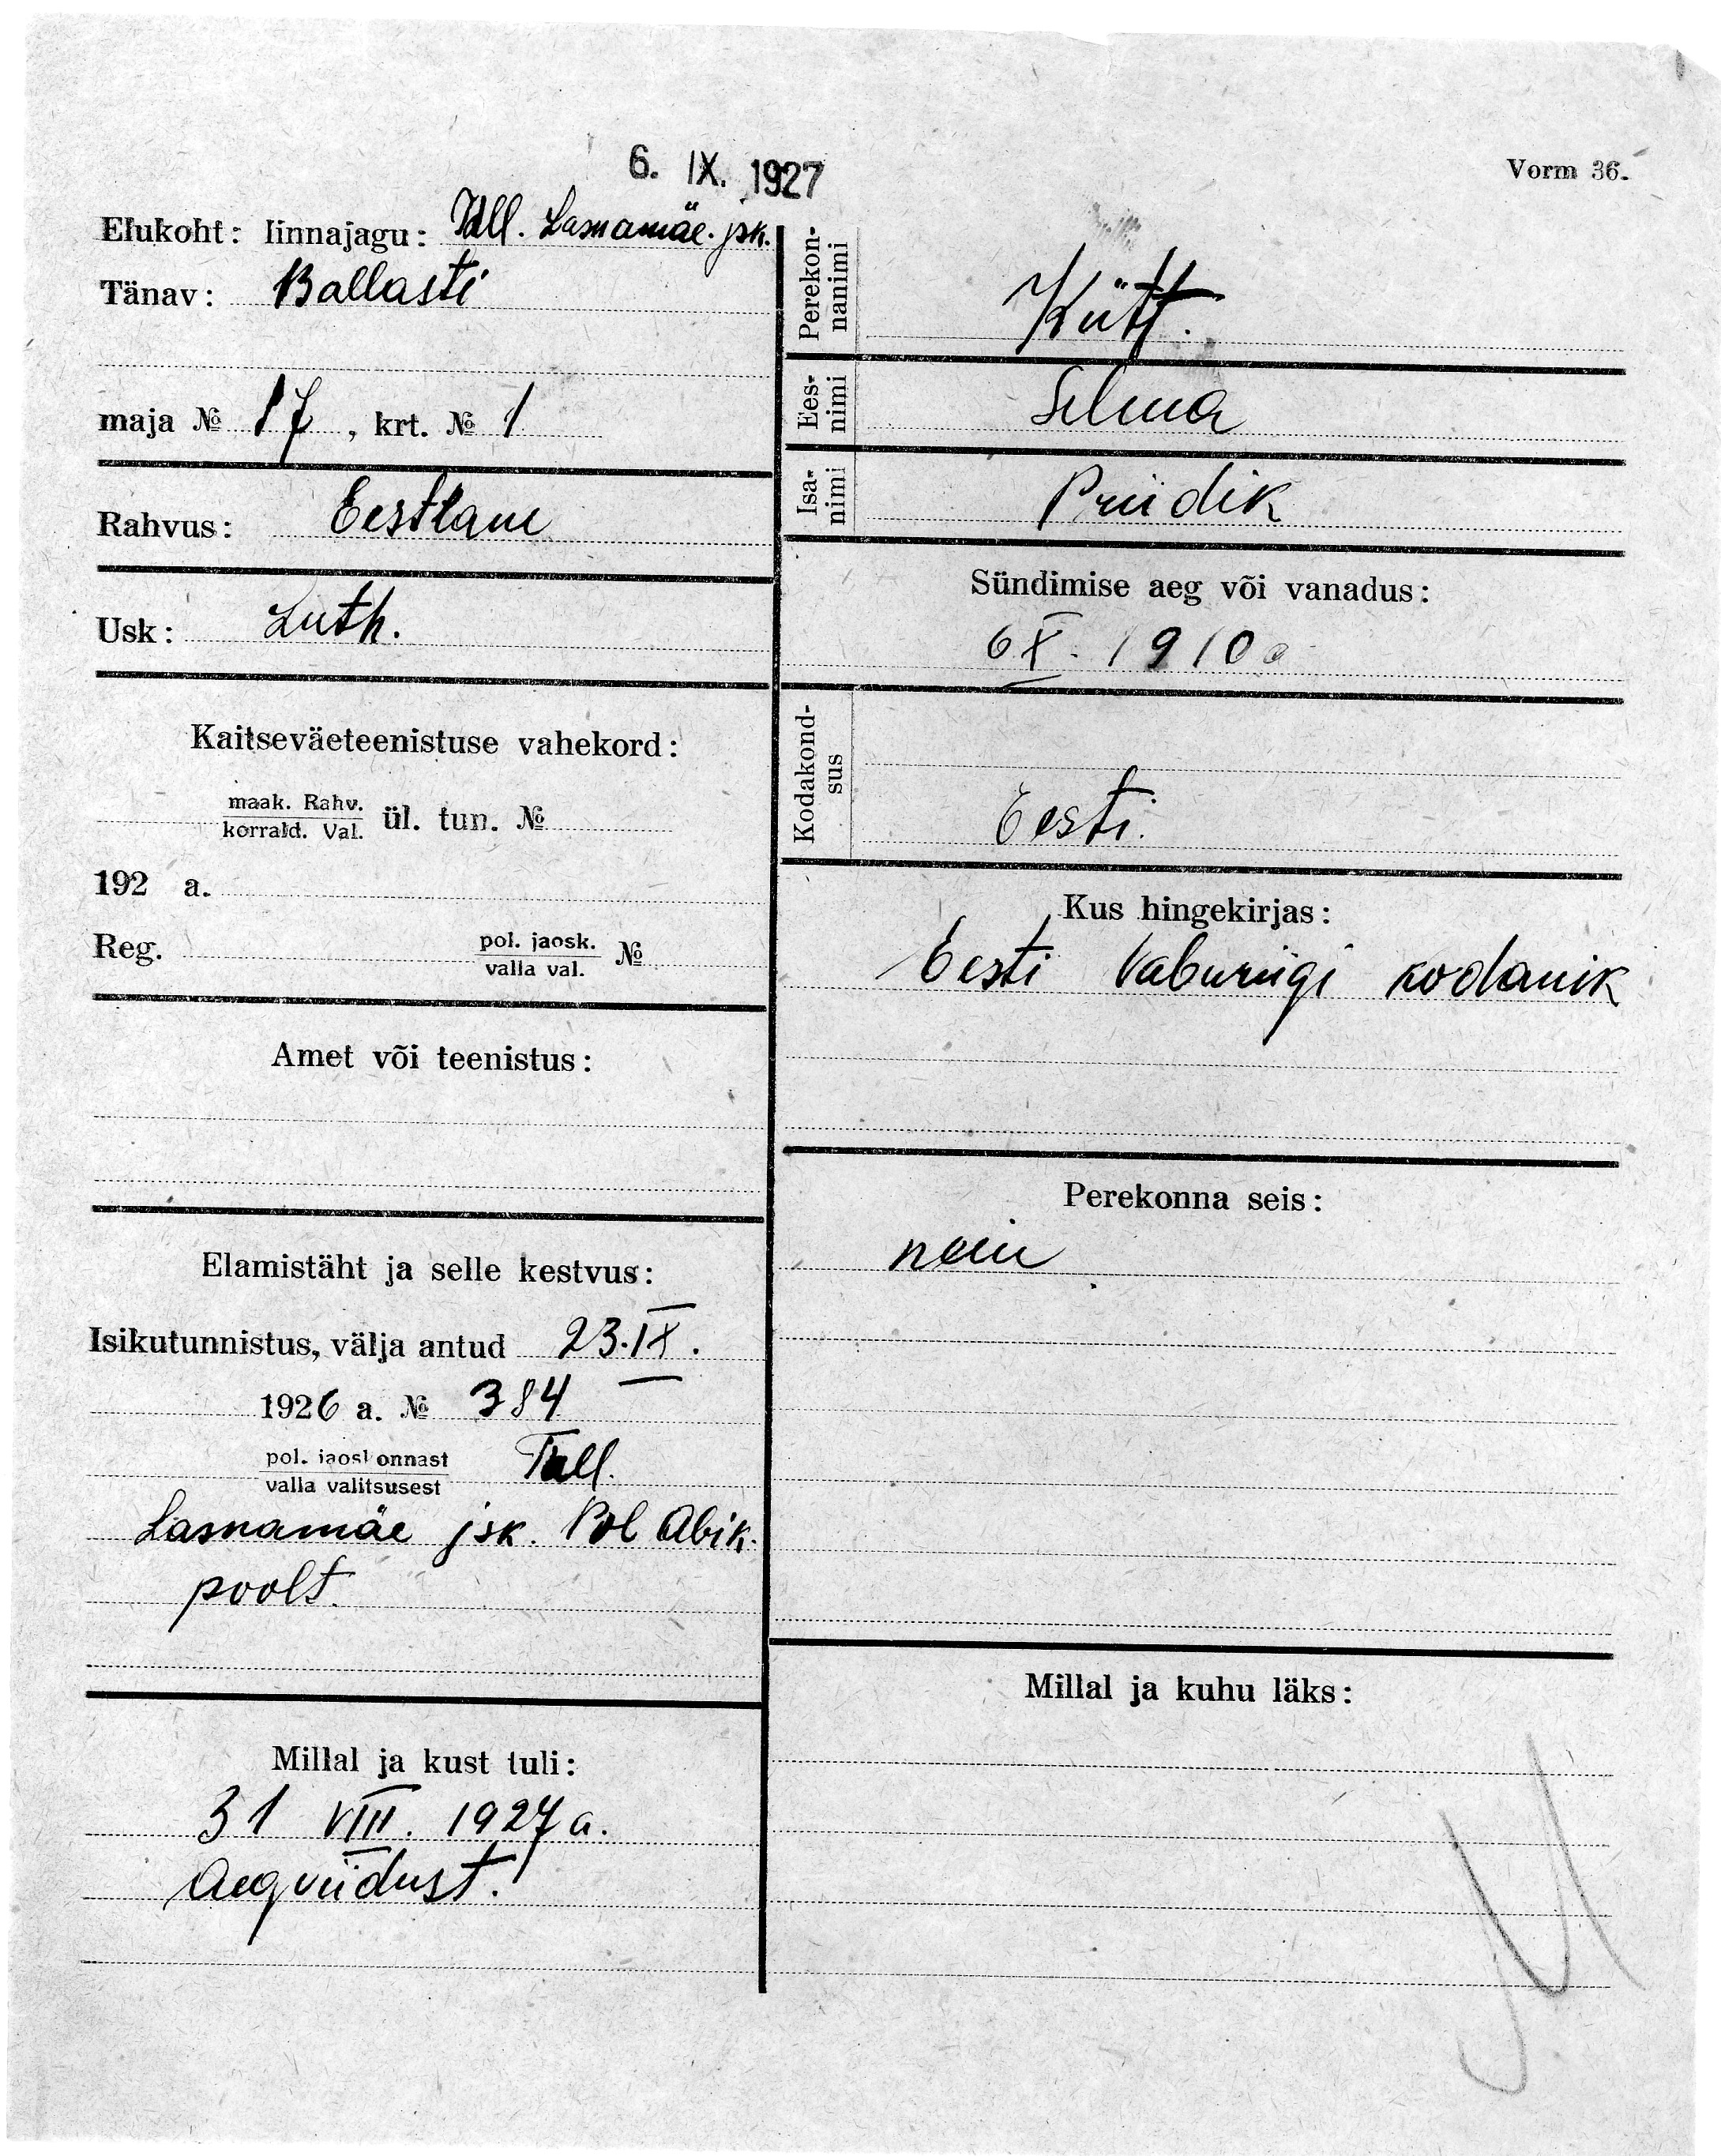 6. IX. 1927
Vorm 36.
Elukoht: linnajagu: Tall. Lasnamäe. jsk.
Tänav: Ballasti
maja № 17, krt. № 1
Rahvus: Eestlane
Usk: Luth.
Kaitseväeteenistuse vahekord:
maak. Rahv.
korrald. Val. ül. tun. №
192 a.
Reg. pol. jaosk.
valla val. №
Amet või teenistus:
Elamistäht ja selle kestvus:
Isikutunnistus, välja antud 23. IX.
1926 a. № 384
pol. jaoskonnast Tall.
valla valitsusest
Lasnamäe jsk. Pol Abik.
poolt.
Millal ja kust tuli:
31 VIII. 1927 a.
Aegviidust.
Perekon-
nanimi Kütt.
Ees-
nimi Selma
Isa-
nimi Priidik
Sündimise aeg või vanadus:
6 X. 1910
Kodakond-
sus Eesti.
Kus hingekirjas:
Eesti Vabariigi kodanik
Perekonna seis:
neiu
Millal ja kuhu läks: